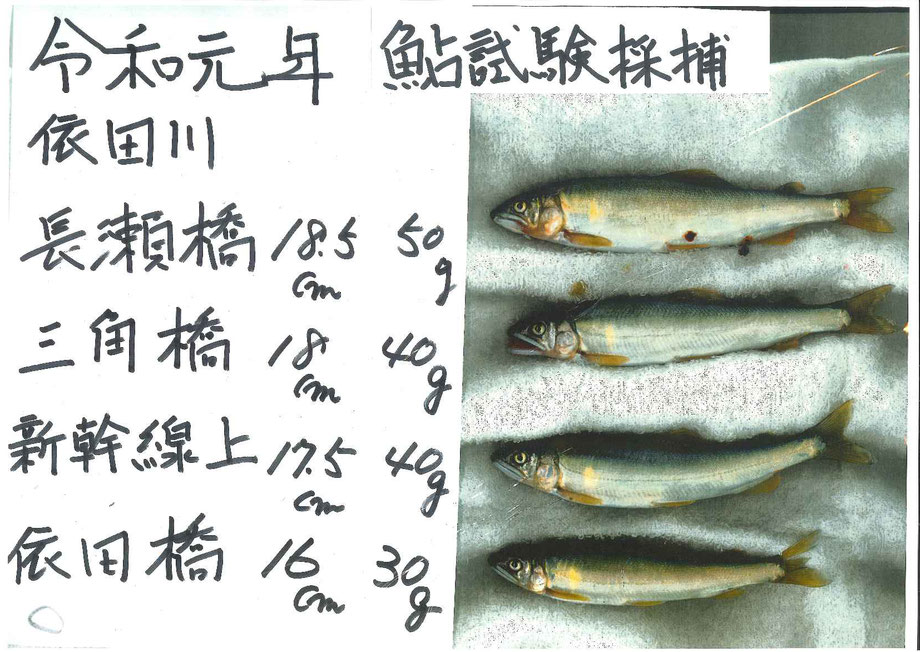 令和元年 鮎試験採捕
依田川
長瀬橋 18.5cm 50g
三角橋 18cm 40g
新幹線上 17.5cm 40g
依田橋 16cm 30g